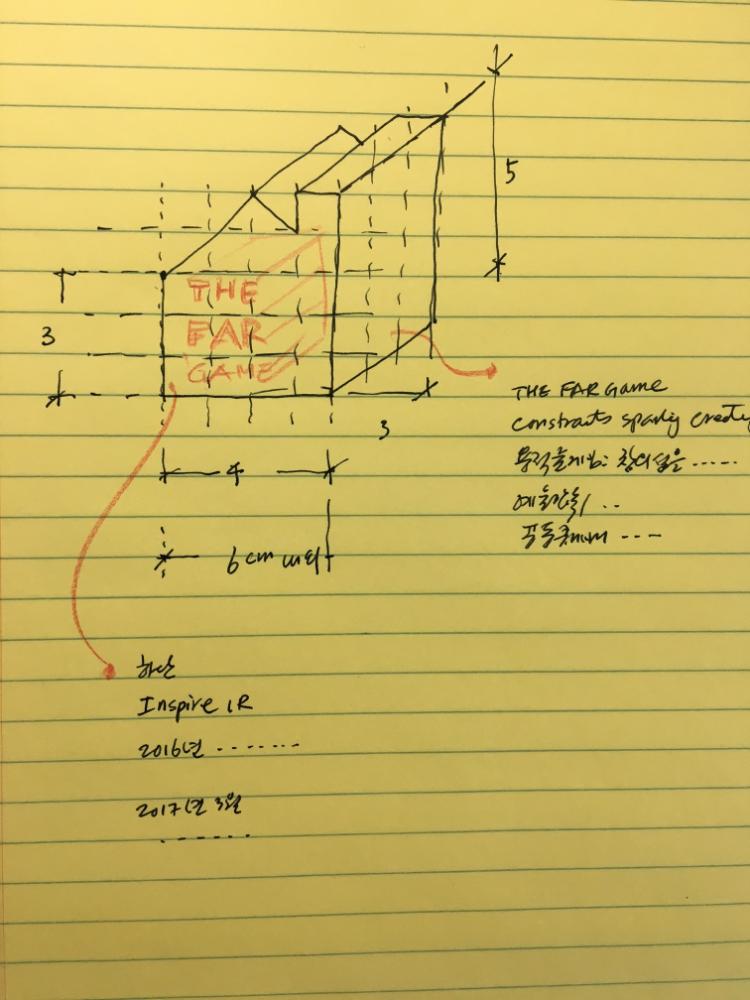 5
THE
FAR
GAME
3
3
4
6cm 이하
THE FAR Game
constraints sparking
용적률게임: 창의성을 .....
예술감독 ..
공동큐레이터 ---
하단
Inspire 1R
2016년 .......
2017년 3월
.......